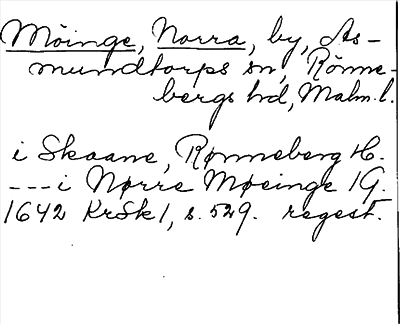 Möinge, Norra, by, As-
mundtorps sn, Rönne-
bergs hd, Malm. l.
i Skaane, Rønneberg H.
--- i Nørre Møeinge 1 G.
1642 KrSk 1, s. 529. regest.